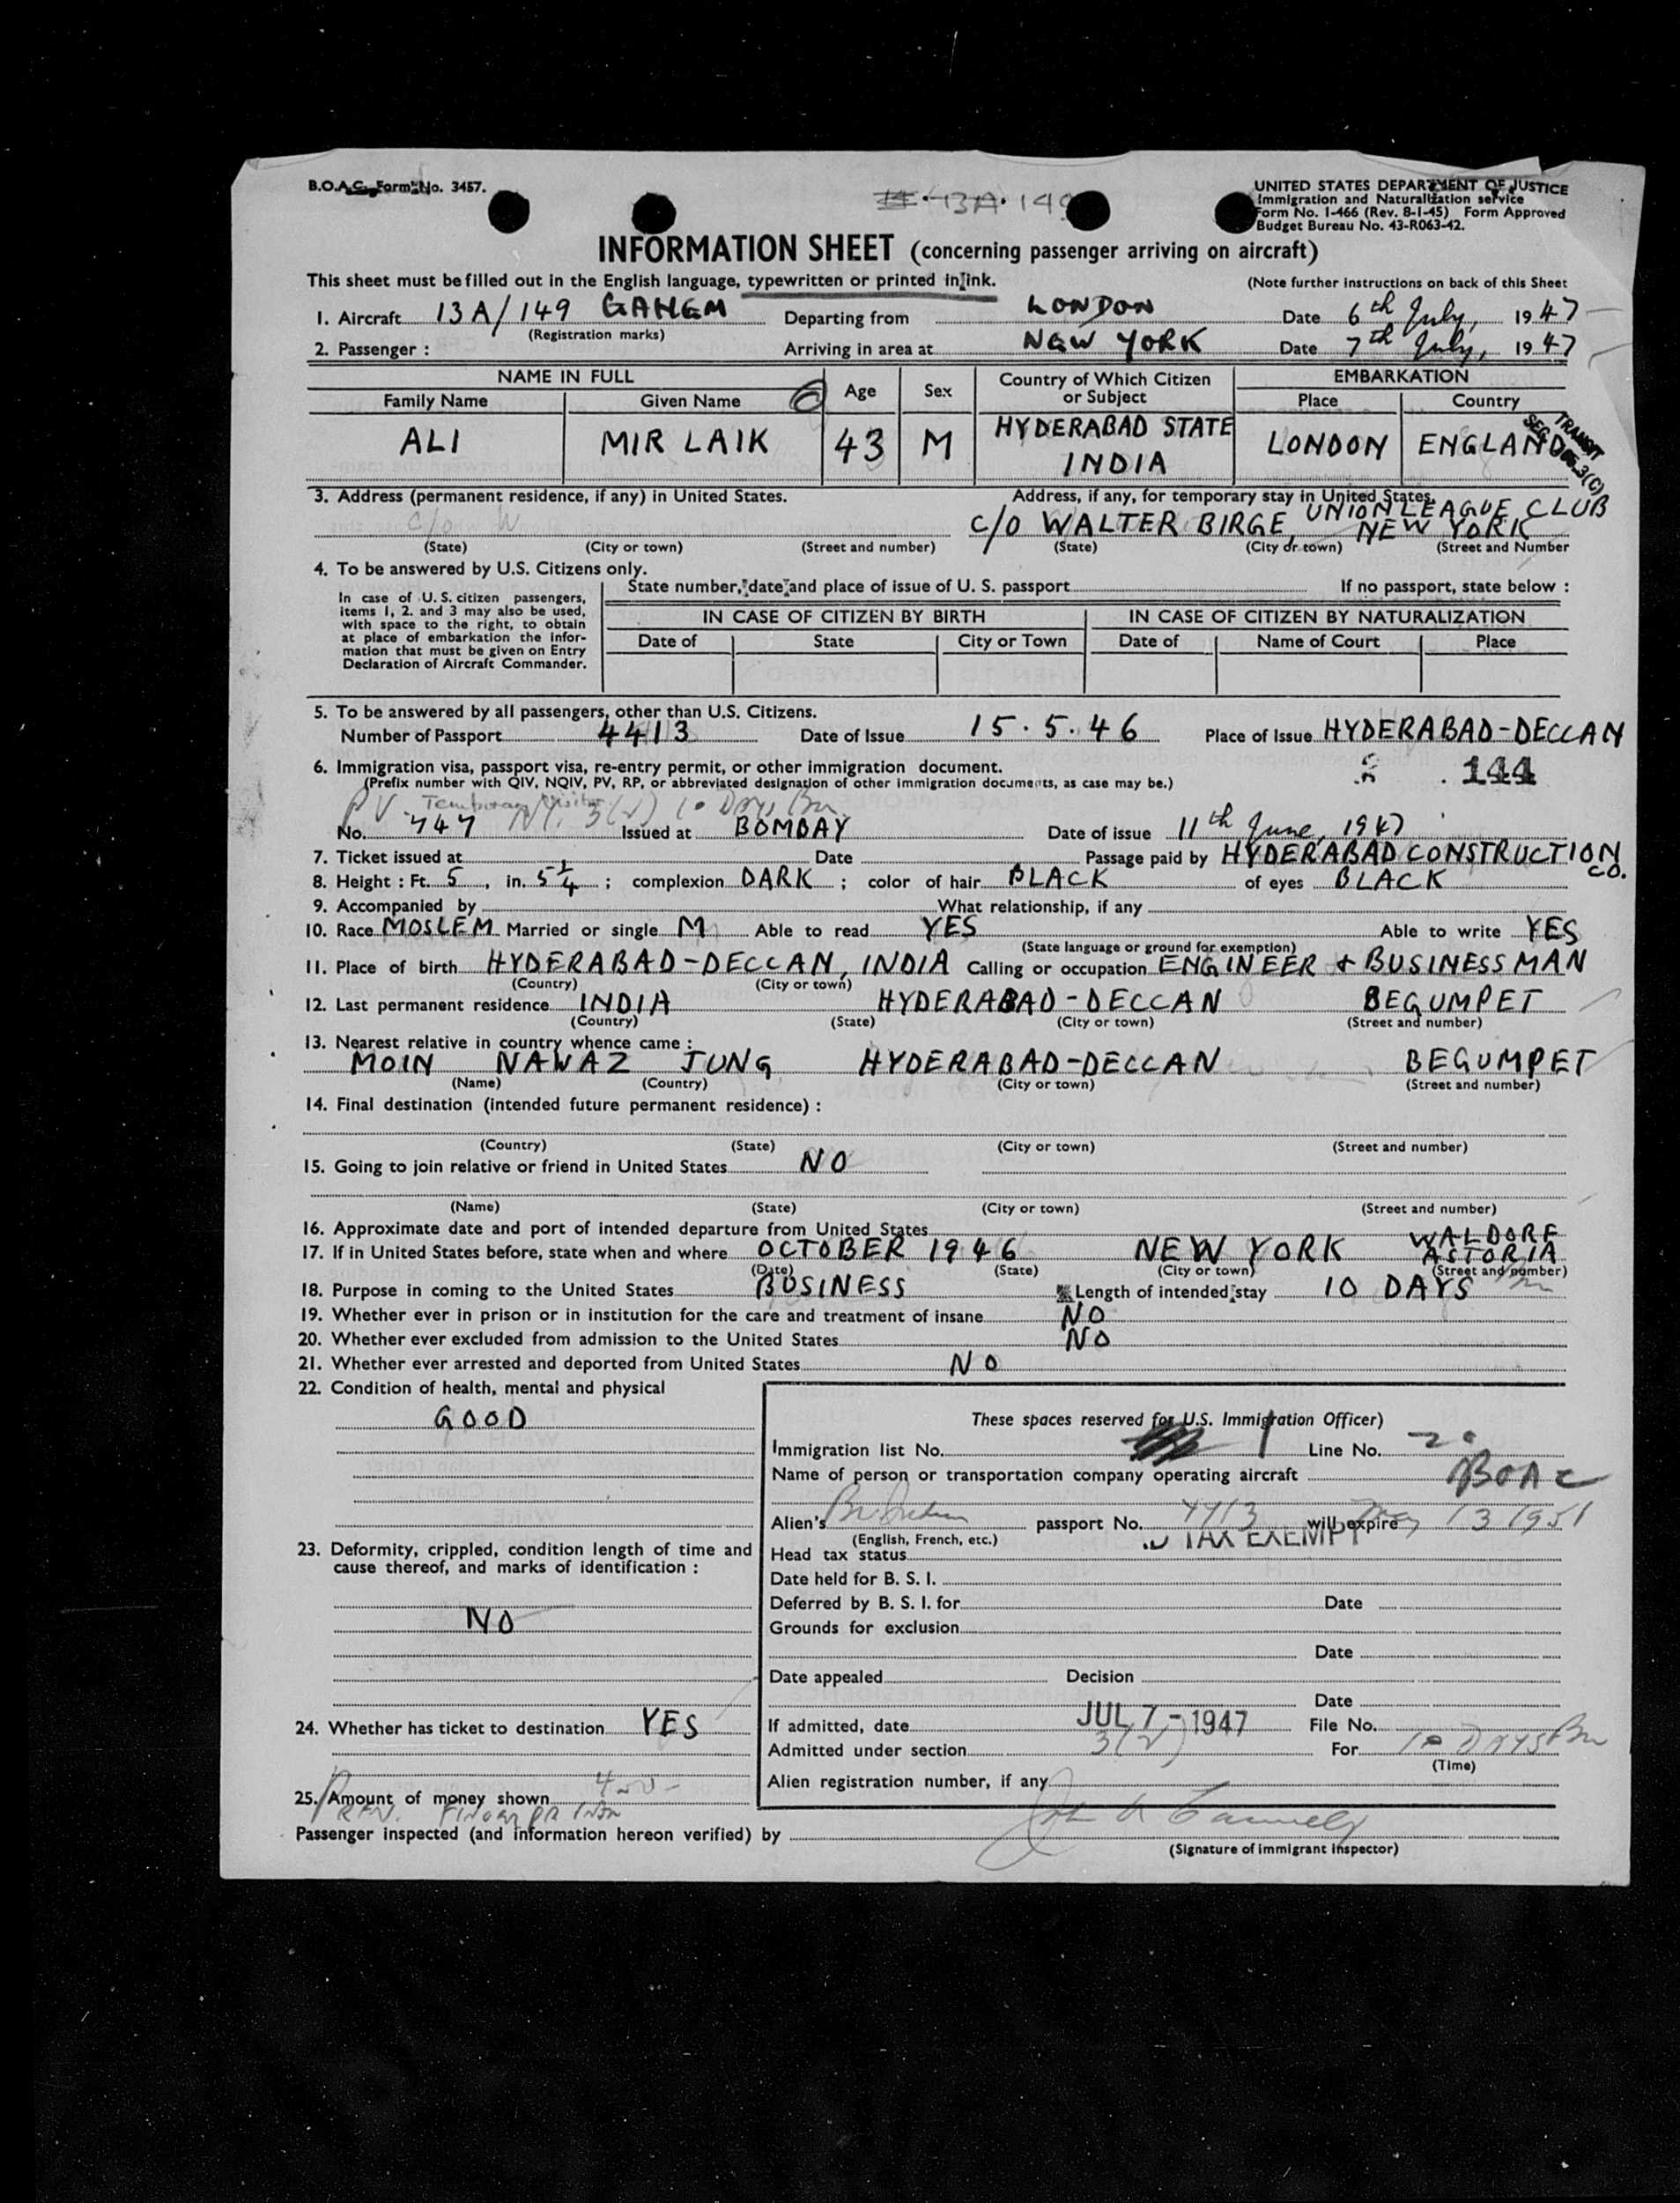 B.O.A.C. Form No. 3457.
13A. 149
UNITED STATES DEPARTMENT OF JUSTICE
Immigration and Naturalization service
Form No. I-466 (Rev. 8-1-45) Form Approved
Budget Bureau No. 43-R063-42.
INFORMATION SHEET (concerning passenger arriving on aircraft)
This sheet must be filled out in the English language, typewritten or printed in ink.
(Note further instructions on back of this Sheet
1. Aircraft 13A/149 GAHEM Departing from LONDON Date 6th July, 1947
(Registration marks)
2. Passenger : Arriving in area at NEW YORK Date 7th July, 1947
NAME IN FULL Age Sex Country of Which Citizen or Subject EMBARKATION
Family Name Given Name Place Country
ALI MIR LAIK 43 M HYDERABAD STATE INDIA LONDON ENGLAND
TRANSIT
SEC. 3(C)
3. Address (permanent residence, if any) in United States. Address, if any, for temporary stay in United States.
c/o W
C/O WALTER BIRGE, UNION LEAGUE CLUB
NEW YORK
(State) (City or town) (Street and number) (State) (City or town) (Street and Number
4. To be answered by U.S. Citizens only.
In case of U.S. citizen passengers, items 1, 2. and 3 may also be used, with space to the right, to obtain at place of embarkation the information that must be given on Entry Declaration of Aircraft Commander.
State number, date and place of issue of U. S. passport If no passport, state below :
IN CASE OF CITIZEN BY BIRTH IN CASE OF CITIZEN BY NATURALIZATION
Date of State City or Town Date of Name of Court Place
5. To be answered by all passengers, other than U.S. Citizens.
Number of Passport 4413 Date of Issue 15.5.46 Place of Issue HYDERABAD-DECCAN
6. Immigration visa, passport visa, re-entry permit, or other immigration document.
(Prefix number with QIV, NQIV, PV, RP, or abbreviated designation of other immigration documents, as case may be.)
144
PV Temporary Visitor 3(2) 10 Days
No. 747 Issued at BOMBAY Date of issue 11th June, 1947
7. Ticket issued at Date Passage paid by HYDERABAD CONSTRUCTION CO.
8. Height : Ft. 5, in. 5 1/4 ; complexion DARK ; color of hair BLACK of eyes BLACK
9. Accompanied by What relationship, if any
10. Race MOSLEM Married or single M Able to read YES Able to write YES
(State language or ground for exemption)
11. Place of birth HYDERABAD-DECCAN, INDIA Calling or occupation ENGINEER + BUSINESS MAN
(Country) (City or town)
12. Last permanent residence INDIA HYDERABAD-DECCAN BEGUMPET
(Country) (State) (City or town) (Street and number)
13. Nearest relative in country whence came :
MOIN NAWAZ JUNG HYDERABAD-DECCAN BEGUMPET
(Name) (Country) (City or town) (Street and number)
14. Final destination (intended future permanent residence) :
(Country) (State) (City or town) (Street and number)
15. Going to join relative or friend in United States NO
(Name) (State) (City or town) (Street and number)
16. Approximate date and port of intended departure from United States
17. If in United States before, state when and where OCTOBER 1946 NEW YORK WALDORF ASTORIA
(Date) (State) (City or town) (Street and number)
18. Purpose in coming to the United States BUSINESS Length of intended stay 10 DAYS
19. Whether ever in prison or in institution for the care and treatment of insane NO
20. Whether ever excluded from admission to the United States NO
21. Whether ever arrested and deported from United States NO
22. Condition of health, mental and physical
GOOD
These spaces reserved for U.S. Immigration Officer)
Immigration list No. 1 Line No. 20
Name of person or transportation company operating aircraft BOAC
Alien's passport No. 4413 will expire May 13 1951
(English, French, etc.)
23. Deformity, crippled, condition length of time and cause thereof, and marks of identification :
NO
Head tax status TAX EXEMPT
Date held for B. S. I.
Deferred by B. S. I. for Date
Grounds for exclusion
Date
Date appealed Decision
Date
24. Whether has ticket to destination YES
If admitted, date JUL 7-1947 File No.
Admitted under section 3(2) For 10 DAYS
(Time)
Alien registration number, if any
25. Amount of money shown 400-
Passenger inspected (and information hereon verified) by
(Signature of Immigrant Inspector)